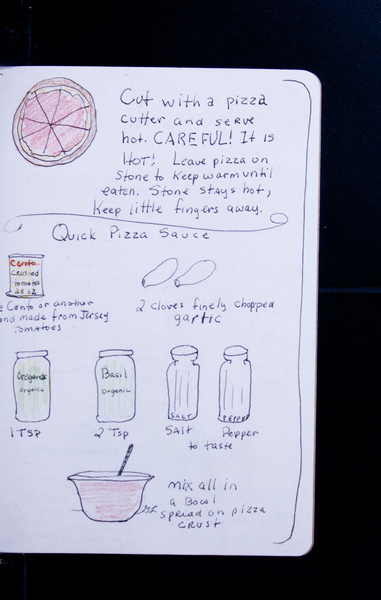 Cut with a pizza
cutter and serve
hot. CAREFUL! It is
HOT! Leave pizza on
Stone to keep warm until
eaten. Stone stays hot,
Keep little fingers away.
Quick Pizza Sauce
Cento
Crushed
tomatoes
28 oz
Cento or another
made from Jersey
Tomatoes
2 cloves finely chopped
garlic
Oregano
organic
Basil
organic
SALT
PEPPER
1 TSP
2 Tsp
SALT
Pepper
to taste
mix all in
a Bowl
spread on pizza
crust